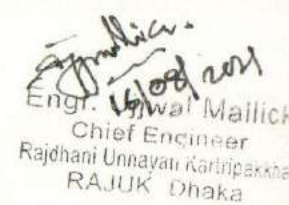 16/08/2021
Engr. Ujjwal Mallick
Chief Engineer
Rajdhani Unnayan Kartripakkha
RAJUK Dhaka